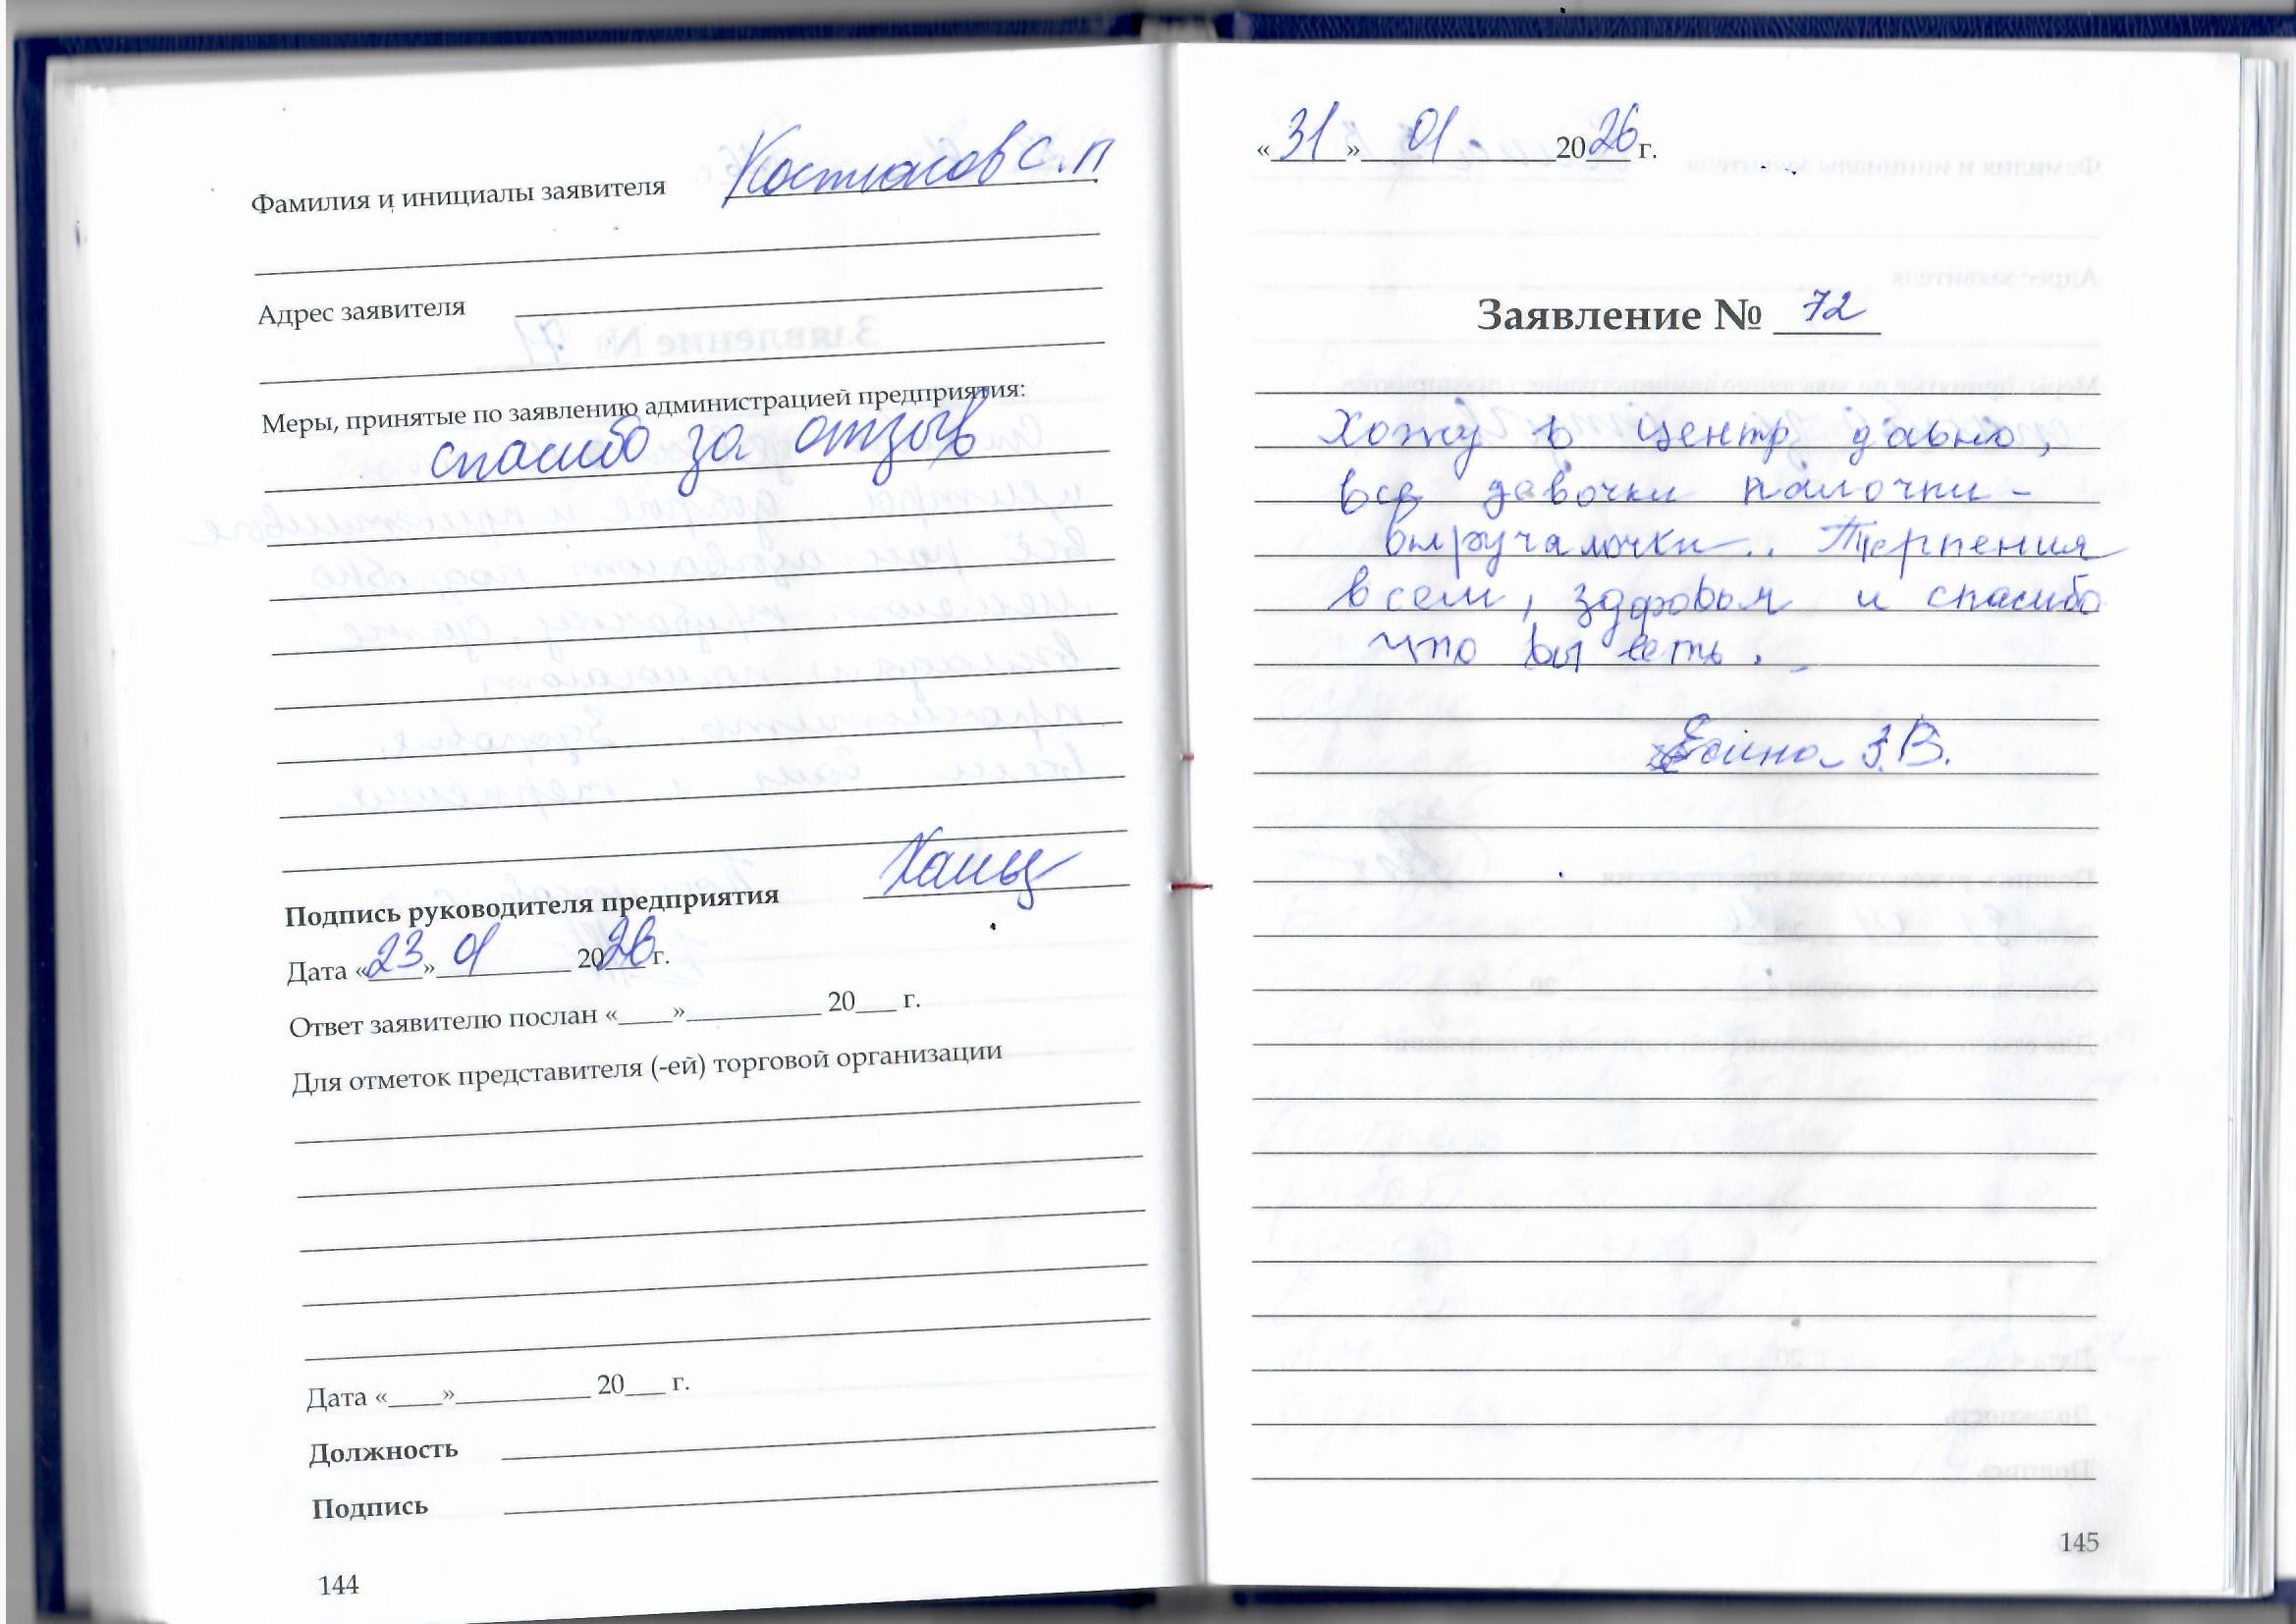 Фамилия и инициалы заявителя Костюков С. П
Адрес заявителя
Меры, принятые по заявлению администрацией предприятия:
спасибо за отзыв
Подпись руководителя предприятия
Дата «23» 01 2026 г.
Ответ заявителю послан «____»__________ 20___ г.
Для отметок представителя (-ей) торговой организации
Дата «____»__________ 20___ г.
Должность
Подпись
144
«31» 01 2026 г.
Заявление № 72
Хожу в центр давно,
все девочки палочки-
выручалочки.. Терпения
всем, здоровья и спасибо
что вы есть.
З.В.
145